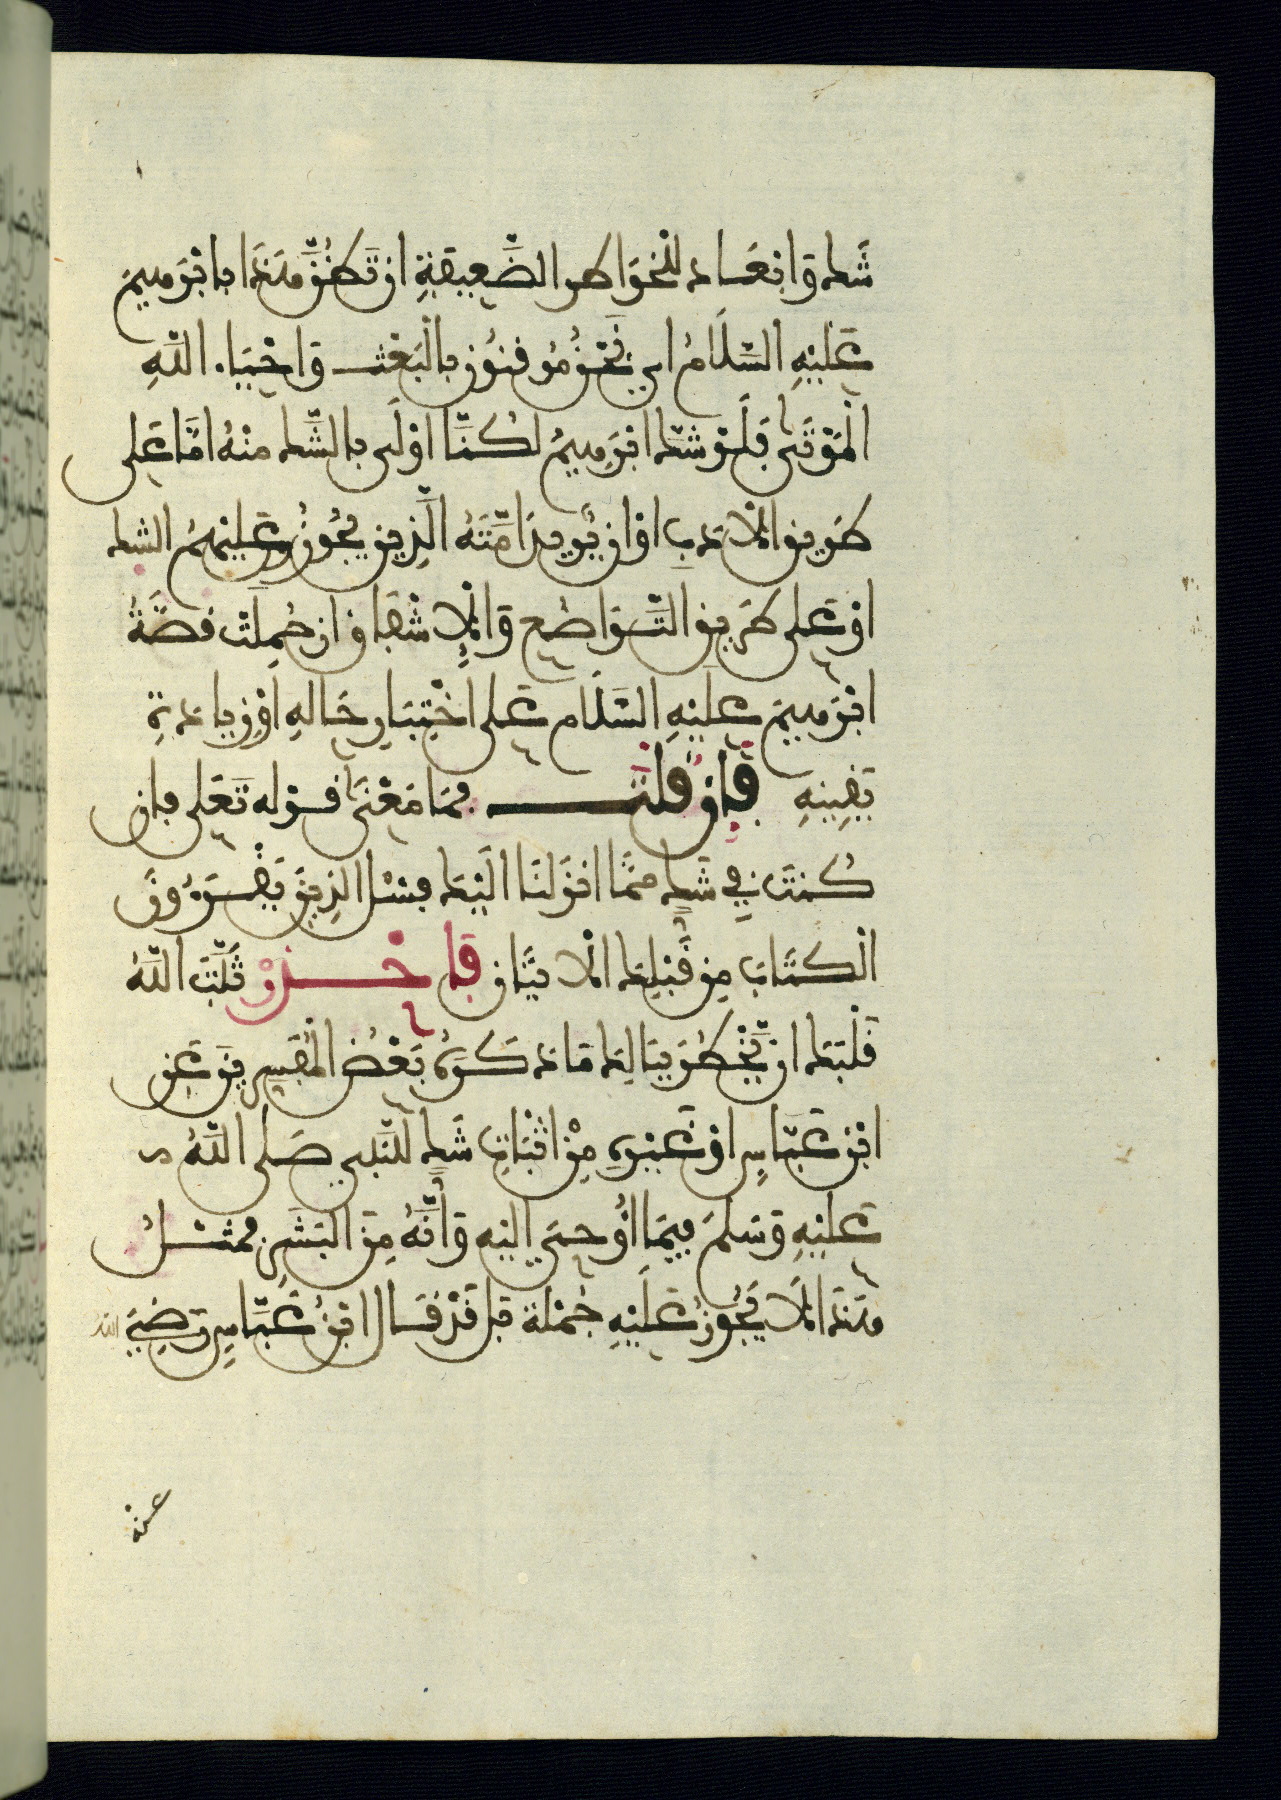 شَك وَابْعَاد لِلْخَوَاطِر الضَّعِيفَةِ ان تَظُنَّ هَذَا بابْرَهِيمَ
عَلَيْهِ السَّلَامُ اي نَحْنُ مُوقِنُونَ بِالْبَعْثِ وَاحْيَاء اللَّهِ
الْمَوْتَى فَلَوْ شَكَّ ابْرَهِيمُ لَكُنَّا اوْلَى بِالشَّك مِنْهُ امَّا عَلَى
طَرِيقِ الْادَبِ اوْ ان يُّرِيدَ امَّتَهُ الَّذِينَ يَجُوزُ عَلَيْهِمُ الشك
اوْ عَلَى طَرِيقِ التَّوَاضُعِ وَالْاِشْفَاقِ ان حُمِلَتْ قِصَّةُ
ابْرَهِيمَ عَلَيْهِ السَّلَام عَلَى اخْتِبَارِ حَالِهِ اوْ زِيَادَةِ
يَقِينِهِ فَإِن قُلْتَ فَمَا مَعْنَى قَوْله تَعَلى فإن
كُنتَ فِي شَكٍّ مِّمَّا انزَلْنَا الَيْكَ فَسْـَلِ الذِينَ يَقْرَءُونَ
الْكِتَابَ مِن قَبْلِكَ الْايَتَانِ فَاحْذَرْ ثَبَّتَ اللَّهُ
قَلْبَكَ ان يَّخْطُرَ بِبَالِكَ مَا ذَكَرَهُ بَعْضُ الْمُفَسِّرِينَ عَنِ
ابْنِ عَبَّاسٍ اوْ غَيْرِهِ مِنْ اثْبَاتِ شَكٍّ لِلنَّبِي صَلَى اللَّهُ
عَلَيْهِ وَسَلمَ فِيمَا اُوحِيَ إِلَيْهِ وَأَنَّهُ مِنَ الْبَشَرِ فَمِثْلُ
هَذَا لَا يَجُوزُ عَلَيْهِ جُمْلَة بَل قَدْ قَالَ ابْنُ عَبَّاسٍ رَضِيَ الله
عنه